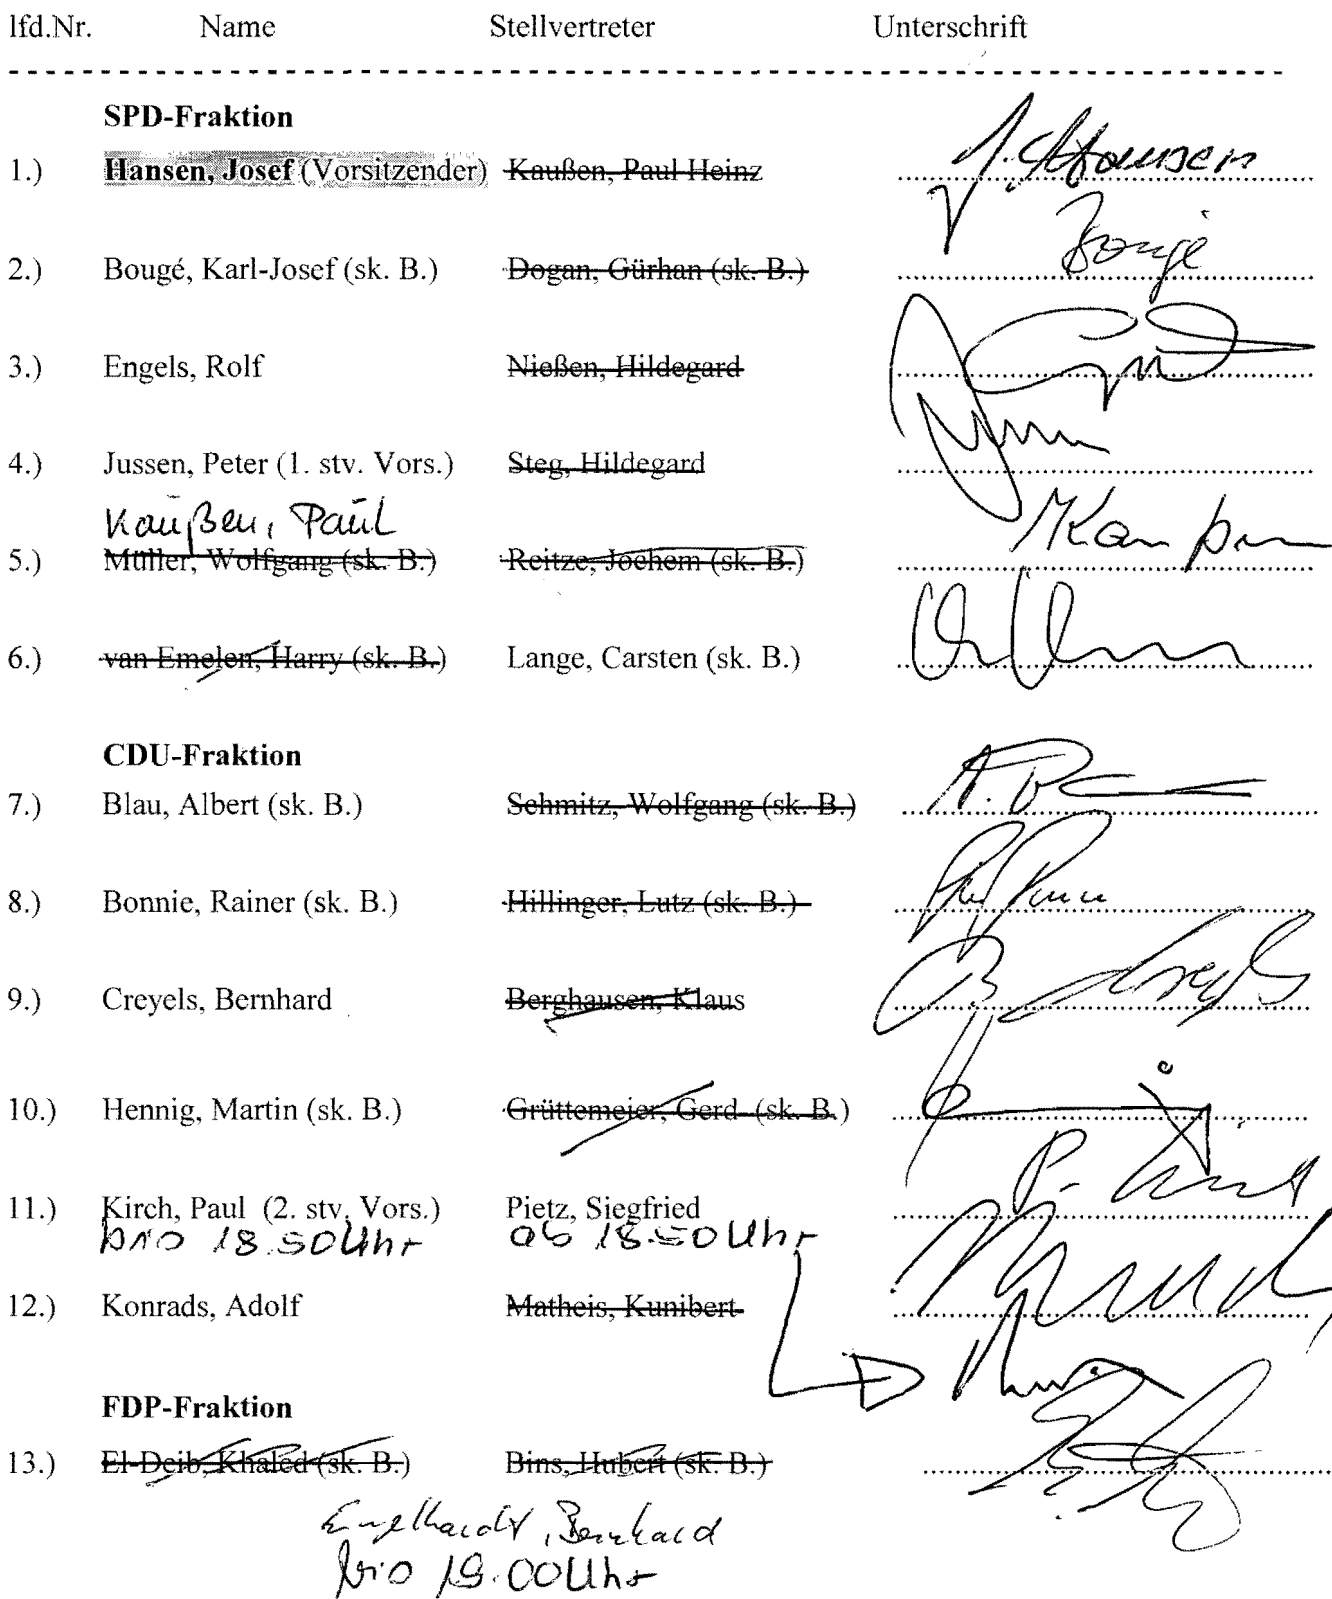 lfd.Nr. Name Stellvertreter Unterschrift
SPD-Fraktion
1.) Hansen, Josef (Vorsitzender) Kaußen, Paul Heinz J. Hansen
2.) Bougé, Karl-Josef (sk. B.) Dogan, Gürhan (sk. B.) Bougé
3.) Engels, Rolf Nießen, Hildegard
4.) Jussen, Peter (1. stv. Vors.) Steg, Hildegard
Kaußen, Paul
5.) Müller, Wolfgang (sk. B.) Reitze, Jochem (sk. B.)
6.) van Emelen, Harry (sk. B.) Lange, Carsten (sk. B.)
CDU-Fraktion
7.) Blau, Albert (sk. B.) Schmitz, Wolfgang (sk. B.)
8.) Bonnie, Rainer (sk. B.) Hillinger, Lutz (sk. B.)
9.) Creyels, Bernhard Berghausen, Klaus
10.) Hennig, Martin (sk. B.) Grüttemeier, Gerd (sk. B.)
11.) Kirch, Paul (2. stv. Vors.) Pietz, Siegfried
bis 18.50 Uhr ab 18.50 Uhr
12.) Konrads, Adolf Matheis, Kunibert
FDP-Fraktion
13.) El-Deib, Khaled (sk. B.) Bins, Hubert (sk. B.)
Engelhardt, Bernhard
bis 19.00 Uhr